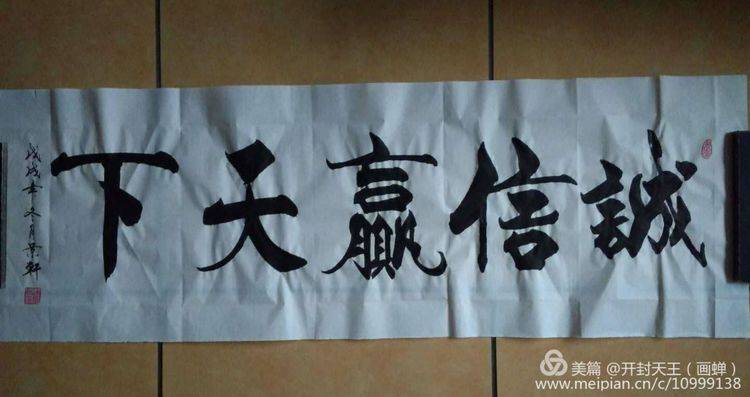 誠信贏天下
戊戌年冬月景轩
美篇 @开封天王（画蝉）
www.meipian.cn/c/10999138